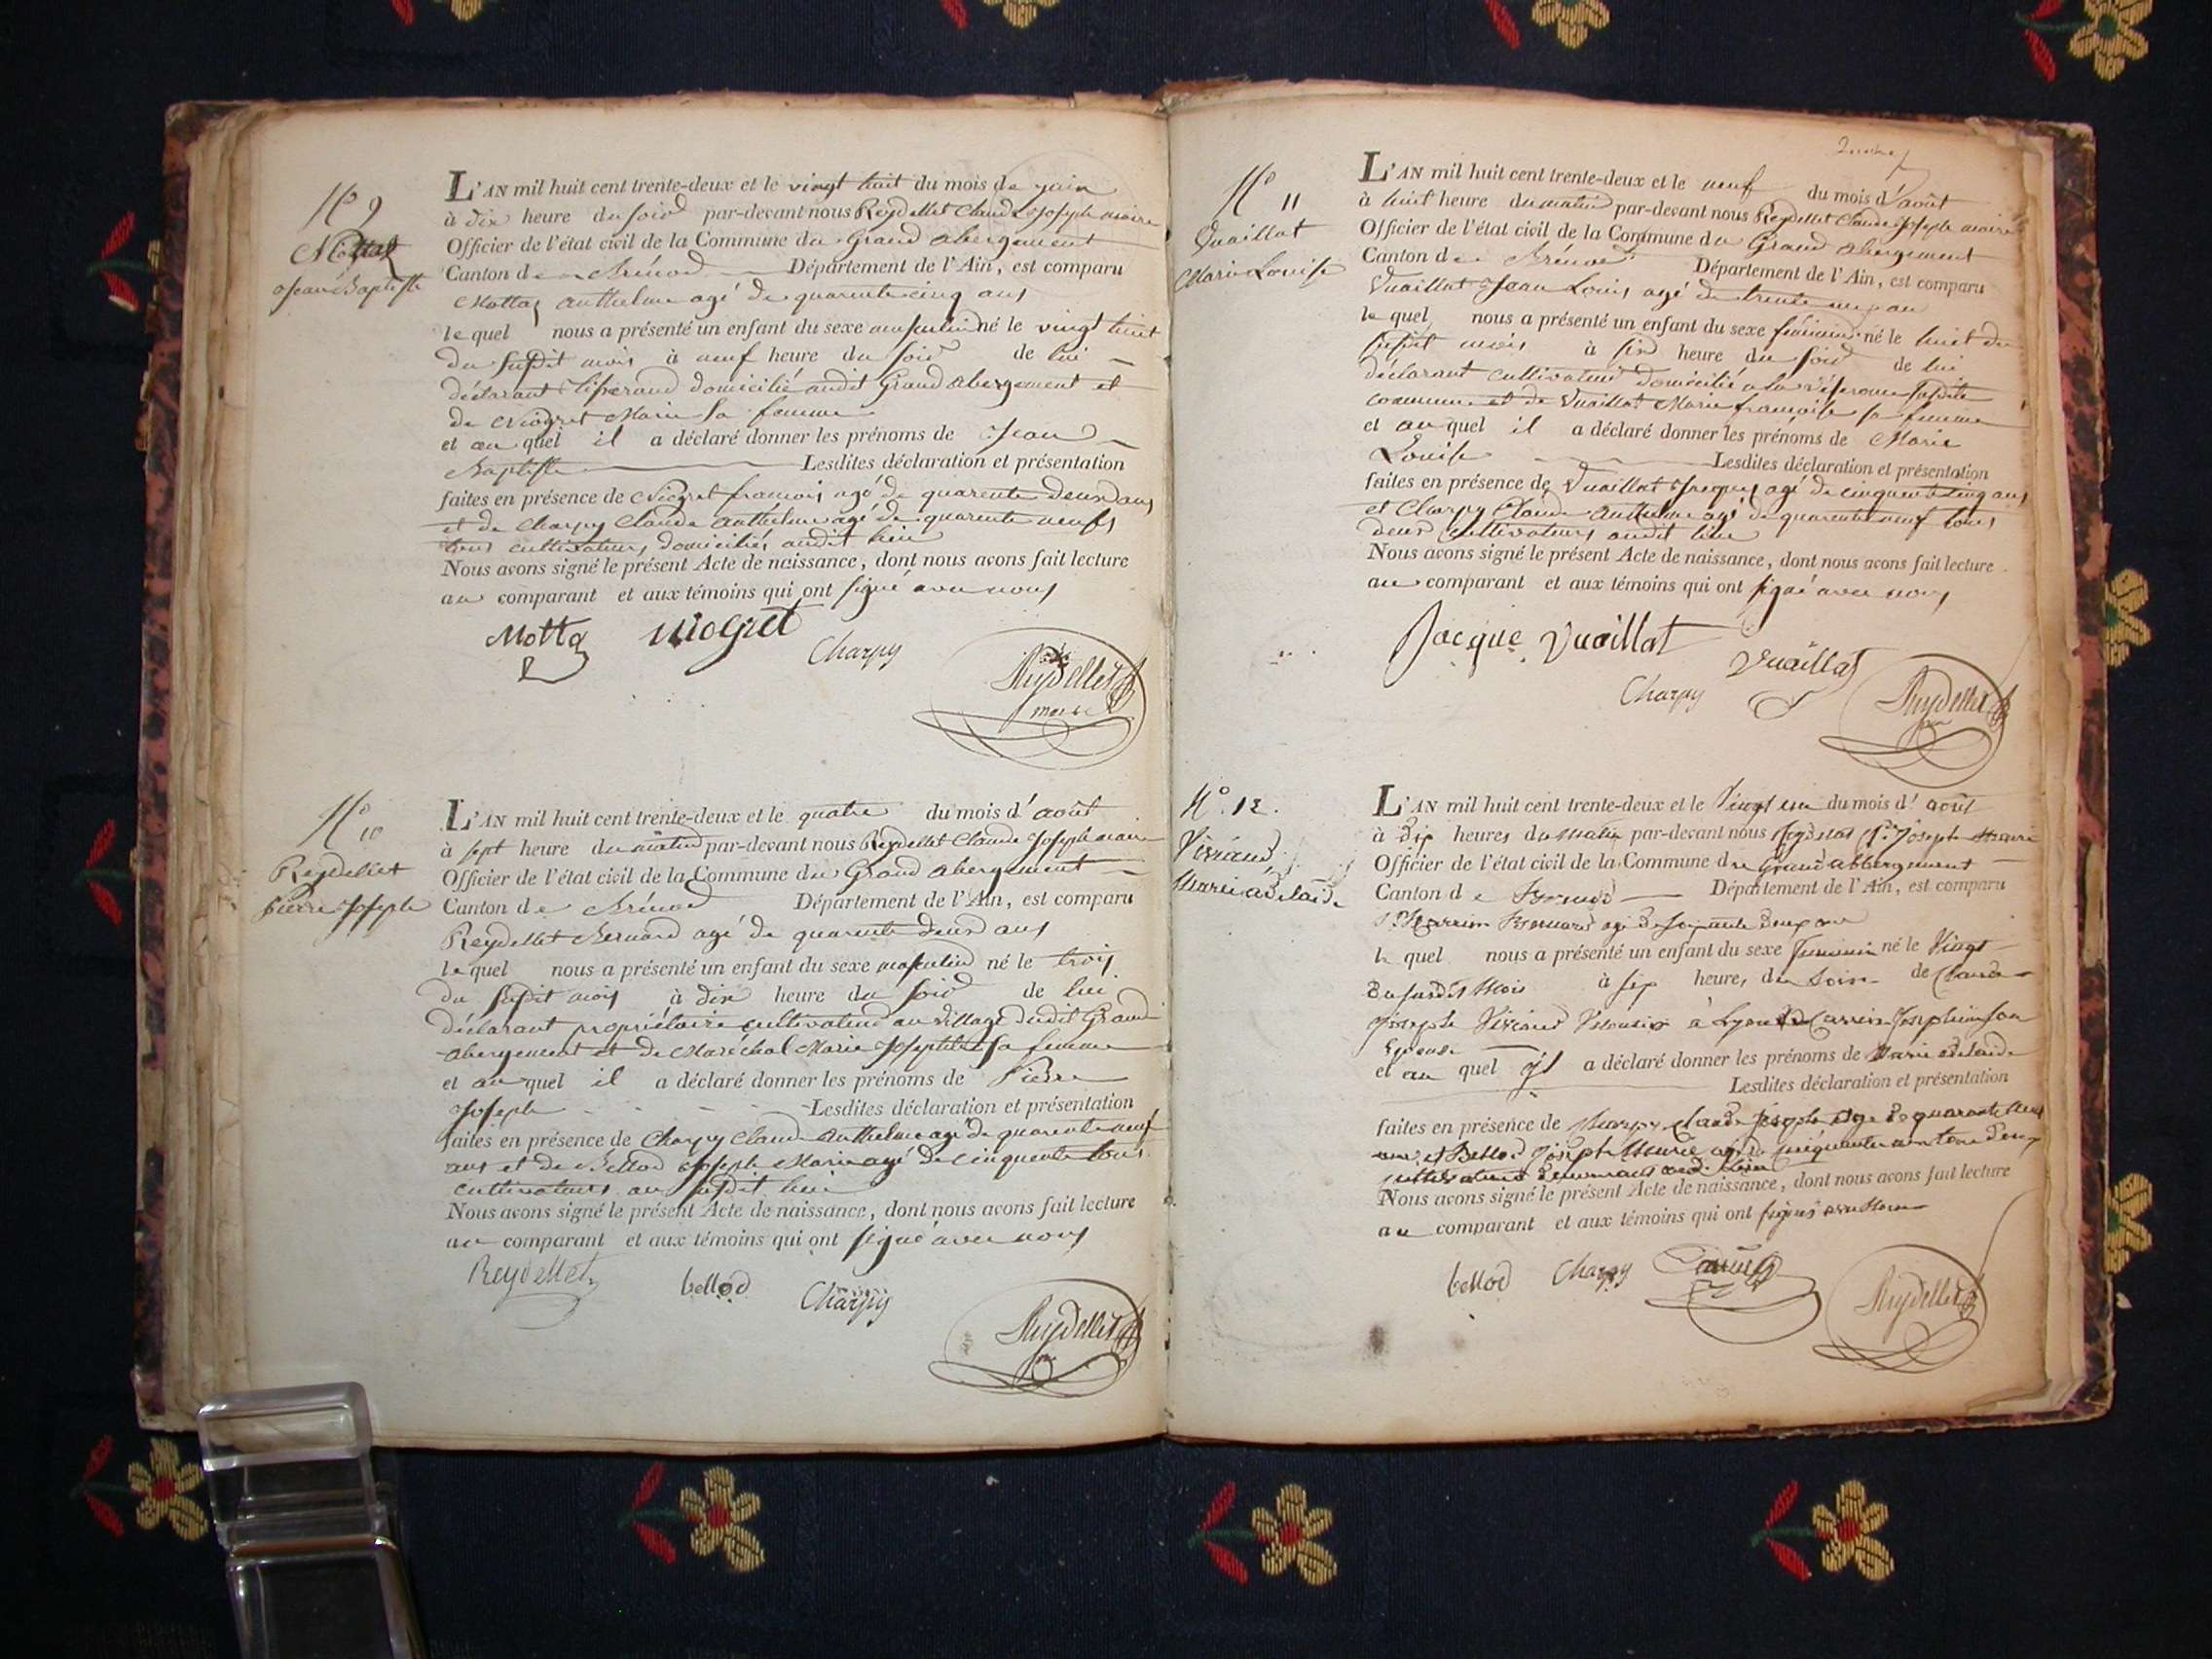 N° 9
Mottaz
Jean Baptiste
L'AN mil huit cent trente-deux et le vingt huit du mois de juin
à dix heure du soir par-devant nous Reydellet Claude Joseph maire
Officier de l'état civil de la Commune du Grand abergement
Canton de Brénod Département de l'Ain, est comparu
Mottaz anthelme agé de quarente cinq ans
le quel nous a présenté un enfant du sexe masculin né le vingt huit
du susdit mois à neuf heure du soir de lui
déclarant tisserand domicilié audit Grand abergement et
de Niogret Marie sa femme
et au quel il a déclaré donner les prénoms de Jean
Baptiste Lesdites déclaration et présentation
faites en présence de Niogret françois agé de quarente deux ans
et de Charpy Claude anthelme agé de quarente neufs
tous cultivateurs domiciliés audit lieu
Nous avons signé le présent Acte de naissance, dont nous avons fait lecture
au comparant et aux témoins qui ont signé avec nous
Motta Niogret Charpy Reydellet
maire
N° 10
Reydellet
Pierre Joseph
L'AN mil huit cent trente-deux et le quatre du mois d'août
à sept heure du matin par-devant nous Reydellet Claude Joseph maire
Officier de l'état civil de la Commune du Grand abergement
Canton de Brénod Département de l'Ain, est comparu
Reydellet Bernard agé de quarente deux ans
le quel nous a présenté un enfant du sexe masculin né le trois
du susdit mois à dix heure du soir de lui
déclarant propriétaire cultivateur au village dudit Grand
abergement et de Maréchal Marie Josephte sa femme
et au quel il a déclaré donner les prénoms de Pierre
Joseph Lesdites déclaration et présentation
faites en présence de Charpy Claude anthelme agé de quarente neuf
ans et de Bellod Joseph Marie agé de cinquente tous
cultivateurs au susdit lieu
Nous avons signé le présent Acte de naissance, dont nous avons fait lecture
au comparant et aux témoins qui ont signé avec nous
Reydellet bellod Charpy Reydellet
N° 11
Vuaillat
Marie Louise
L'AN mil huit cent trente-deux et le neuf du mois d'août
à huit heure du matin par-devant nous Reydellet Claude Joseph maire
Officier de l'état civil de la Commune du Grand abergement
Canton de Brénod Département de l'Ain, est comparu
Vuaillat Jean Louis agé de trente un an
le quel nous a présenté un enfant du sexe feminin né le huit du
susdit mois à six heure du soir de lui
déclarant cultivateur domicilié a la susdite
commune et de Vuaillat Marie françoise sa femme
et au quel il a déclaré donner les prénoms de Marie
Louise Lesdites déclaration et présentation
faites en présence de Vuaillat Jacques agé de cinquente cinq ans
et Charpy Claude anthelme agé de quarente neuf tous
deux cultivateurs audit lieu
Nous avons signé le présent Acte de naissance, dont nous avons fait lecture
au comparant et aux témoins qui ont signé avec nous
Jacque Vuaillat Vuaillat
Charpy Reydellet
N° 12.
Marie adelaide
L'AN mil huit cent trente-deux et le Vingt un du mois d'août
à dix heures du Matin par-devant nous Reydellet Cde Joseph Maire
Officier de l'état civil de la Commune du Grand abbergement
Canton de Brenod Département de l'Ain, est comparu
Bernard agé de soixante deux ans
le quel nous a présenté un enfant du sexe feminin né le Vingt
du susdit Mois à six heures du Soir de Claude
Joseph à Lyon Josephine son
Epouse
et au quel il a déclaré donner les prénoms de Marie adelaide
Lesdites déclaration et présentation
faites en présence de Charpy Claude agé de quarante neuf
ans et Bellod Joseph Marie agé de cinquante ans tous deux
cultivateurs demeurant audit lieu
Nous avons signé le présent Acte de naissance, dont nous avons fait lecture
au comparant et aux témoins qui ont signés avec Nous
bellod Charpy Reydellet